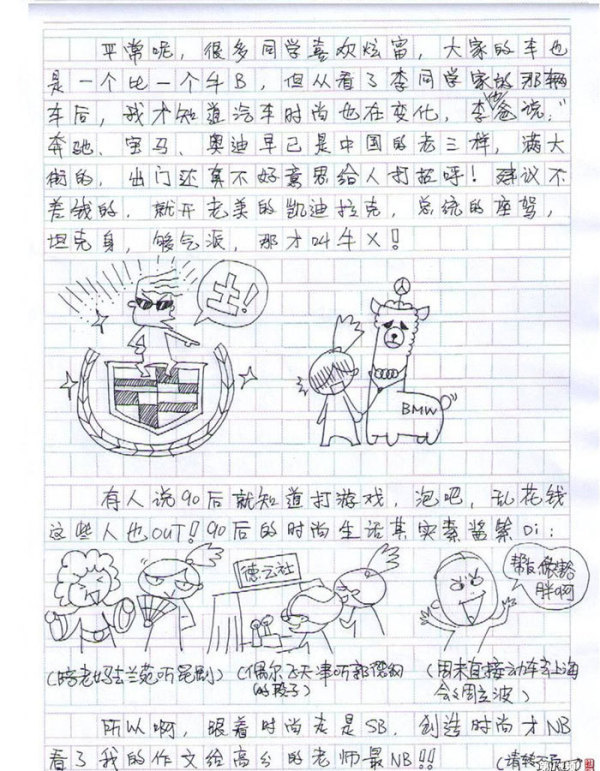 平常呢，很多同学喜欢炫富，大家的车也
是一个比一个牛B，但从看了李同学家的那辆
车后，我才知道汽车时尚也在变化，李他爸说，“
奔驰、宝马、奥迪早已是中国的老三样，满大
街的，出门还真不好意思给人打招呼！建议不
差钱的，就开老美的凯迪拉克，总统的座驾，
坦克身，够气派，那才叫牛X！
土！
BMW
有人说90后就知道打游戏，泡吧，乱花钱
这些人也OUT！90后的时尚生活其实素酱紫Di：
德云社
帮友做豁
胖啊
(陪老妈去兰苑听昆剧)
(偶尔飞天津听郭德纲
的段子)
(周末直接动车去上海
会会周立波)
所以啊，跟着时尚走是SB，创造时尚才NB
看了我的作文给高分的老师最NB!!
(请转